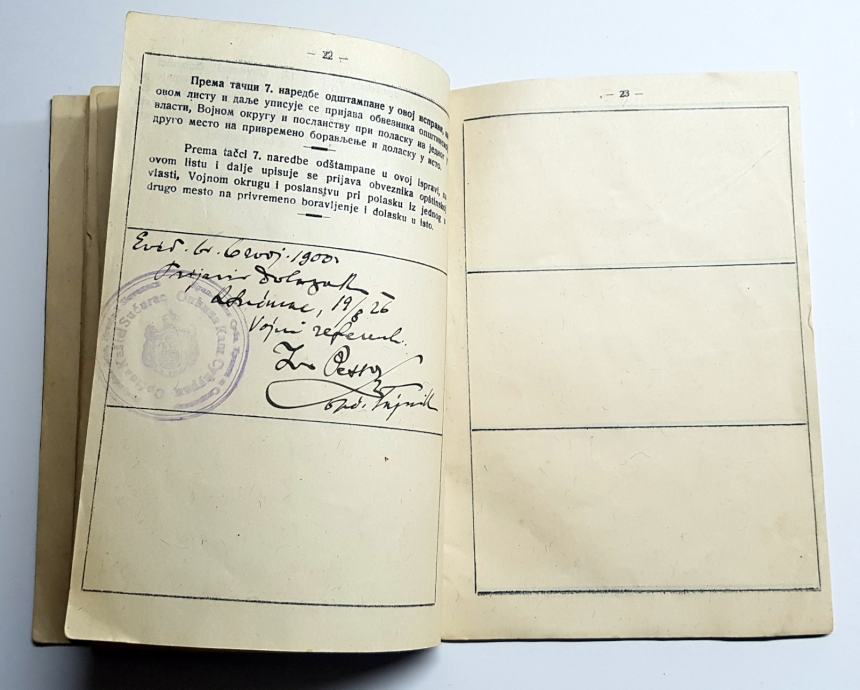 — 22 —
Према тачци 7. наредбе одштампане у овој исправи, на
овом листу и даље уписује се пријава обвезника општинској
власти, Војном округу и посланству при поласку из једног у
друго место на привремено борављење и доласку у исто.
Prema tačci 7. naredbe odštampane u ovoj ispravi, na
ovom listu i dalje upisuje se prijava obveznika opštinskoj
vlasti, Vojnom okrugu i poslanstvu pri polasku iz jednog u
drugo mesto na privremeno boravljenje i dolasku u isto.
Evid. br. 6 voj. 1900.
Prijavio dolazak
19/8 26
Vojni referent.
Kaštel Sućurac Општина Каштел Сућурац
— 23 —